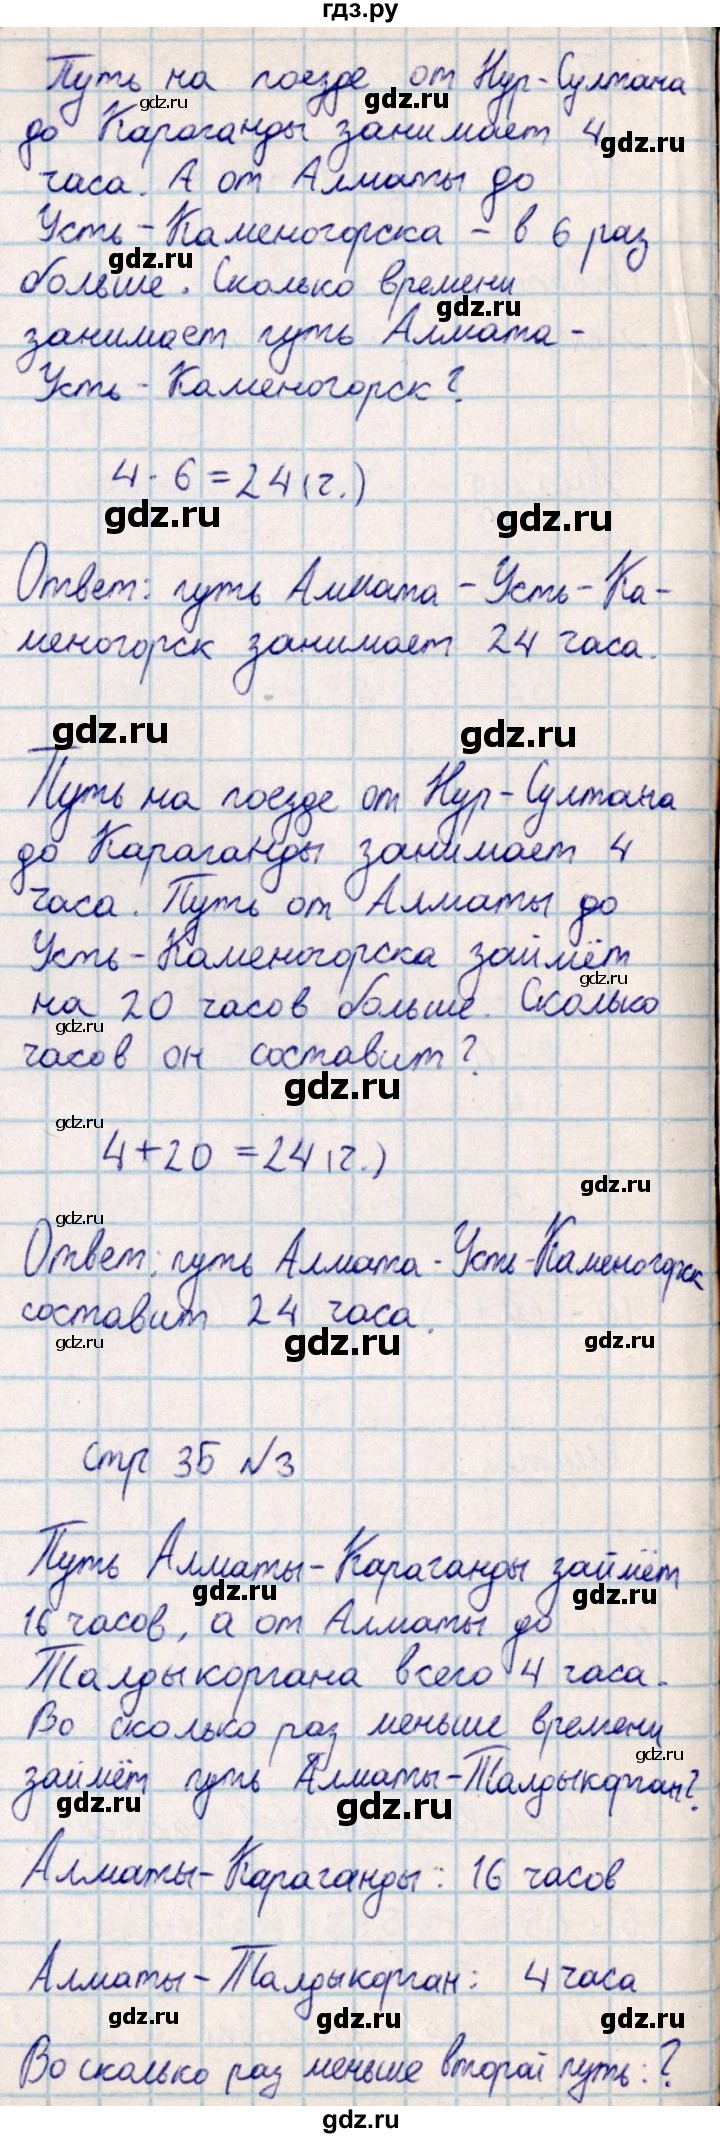 гдз.ру
Путь на поезде от Нур-Султана
gdz.ru
gdz.ru
до Караганды занимает 4
gdz.ru
часа. А от Алматы до
Усть-Каменогорска - в 6 раз
gdz.ru
больше. Сколько времени
gdz.ru
занимает путь Алмата-
Усть-Каменогорск?
4·6=24(ч.)
gdz.ru
gdz.ru
Ответ: путь Алмата-Усть-Ка-
меногорск занимает 24 часа.
gdz.ru
gdz.ru
Путь на поезде от Нур-Султана
до Караганды занимает 4
часа. Путь от Алматы до
gdz.ru
Усть-Каменогорска займёт
gdz.ru
на 20 часов больше. Сколько
gdz.ru
часов он составит?
gdz.ru
gdz.ru
4+20=24(ч.)
gdz.ru
gdz.ru
Ответ: путь Алмата-Усть-Каменогорск
составит 24 часа.
gdz.ru
gdz.ru
gdz.ru
стр 35 №3
Путь Алматы-Караганды займёт
gdz.ru
gdz.ru
16 часов, а от Алматы до
Талдыкоргана всего 4 часа.
Во сколько раз меньше времени
gdz.ru
займёт путь Алматы-Талдыкорган?
gdz.ru
gdz.ru
Алматы-Караганды: 16 часов
Алматы-Талдыкорган: 4 часа
gdz.ru
gdz.ru
gdz.ru
Во сколько раз меньше второй путь: ?
gdz.ru